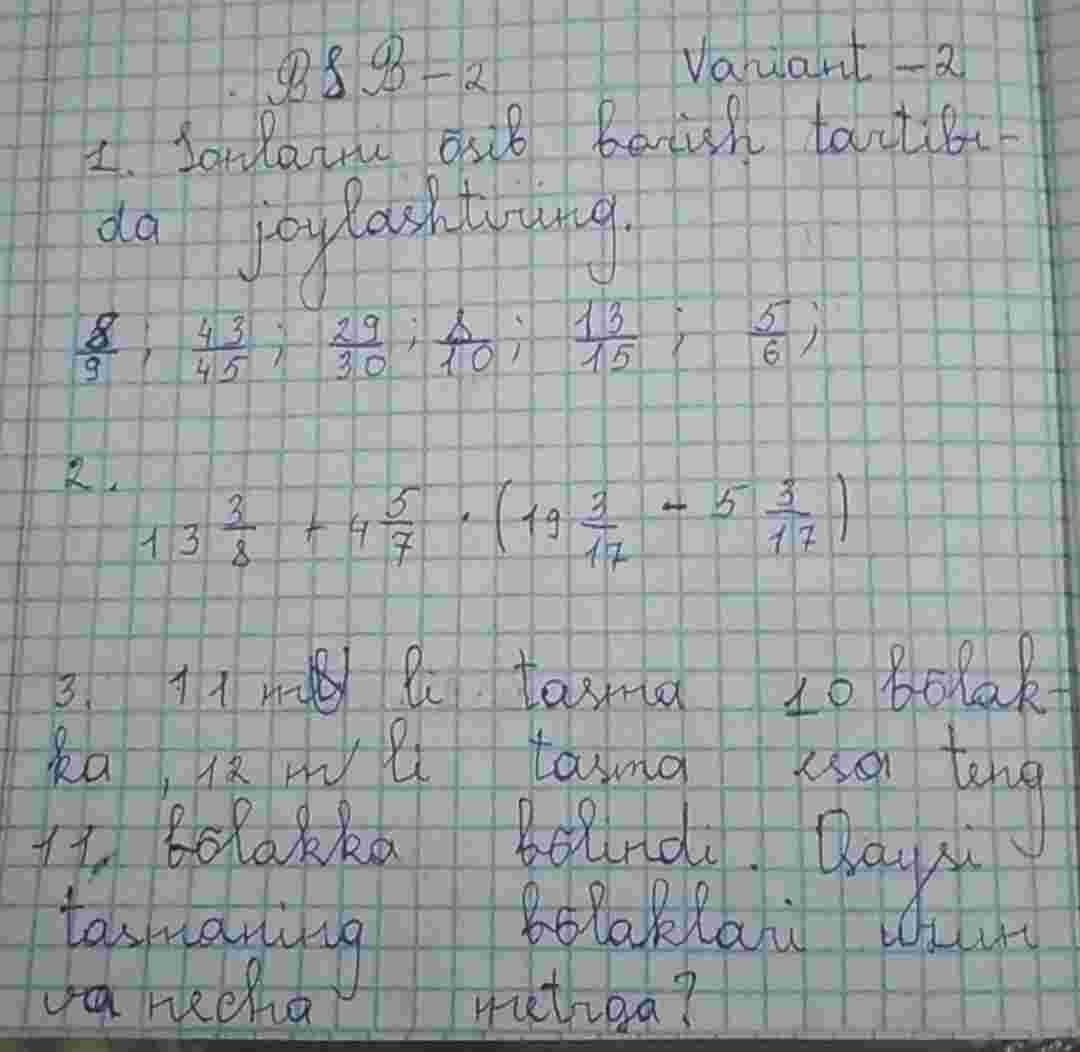 BSB-2 Variant-2
1. Sonlarni ösib borish tartibi-
da joylashtiring.
8/9; 43/45; 29/30; 8/10; 13/15; 5/6;
2.
13 3/8 + 4 5/7 · (19 3/17 - 5 3/17)
3. 11 m li tasma 10 bölak-
ka, 12 m li tasma esa teng
11. bölakka bölindi. Qaysi
tasmaning bölaklari uzun
va necha metrga?